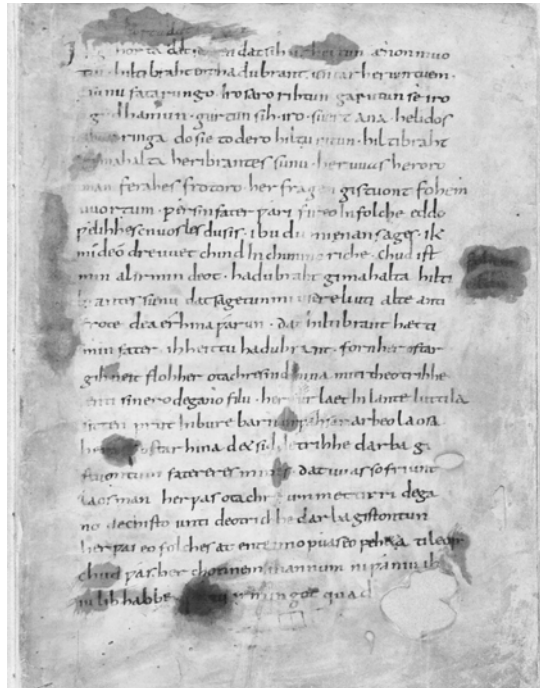 gihorta dat dat sih urhettun ænon muo
tin · hiltibraht enti hadubrant · untar heriun tuem ·
sunu fatarungo · iro saro rihtun garutun se iro
gudhamun · gurtun sih · iro · suert ana · helidos
ringa do sie to dero hiltu ritun · hiltibraht
gimahalta heribrantes sunu · her uuas heroro
man ferahes frotoro · her fragen gistuont fohem
uuortum · ƿer sin fater ƿari fireo In folche eddo
ƿelihhes cnuosles du sis · ibu du mi enan sages · ik
mideo dre uuet chind In chunincriche · chud ist
min al irmin deot · hadubraht gimahalta hilti
brantes sunu dat sagetun mi usere liuti alte anti
frote dea érhina ƿarun · dat hiltibrant hætti
min fater · ih heittu hadubrant · forn her ostar
gihueit floh her otachres nid hina miti theotrihhe
enti sinero degano filu · her furlaet In lante luttila
sitten prut In bure barn unƿahsan arbeo laosa
ostar hina det sid detrihhe darba gi
stuontum fatereres mines · dat uuas so friunt
laos man her ƿas otachre ummettirri dega
no dechisto unti deotrichhe darba gistontun
her ƿas eo folches at ente imo ƿuas eo feheta ti leop
chud ƿas her chonnem mannum ni ƿaniu ih
iu lib habbe irmingot quad